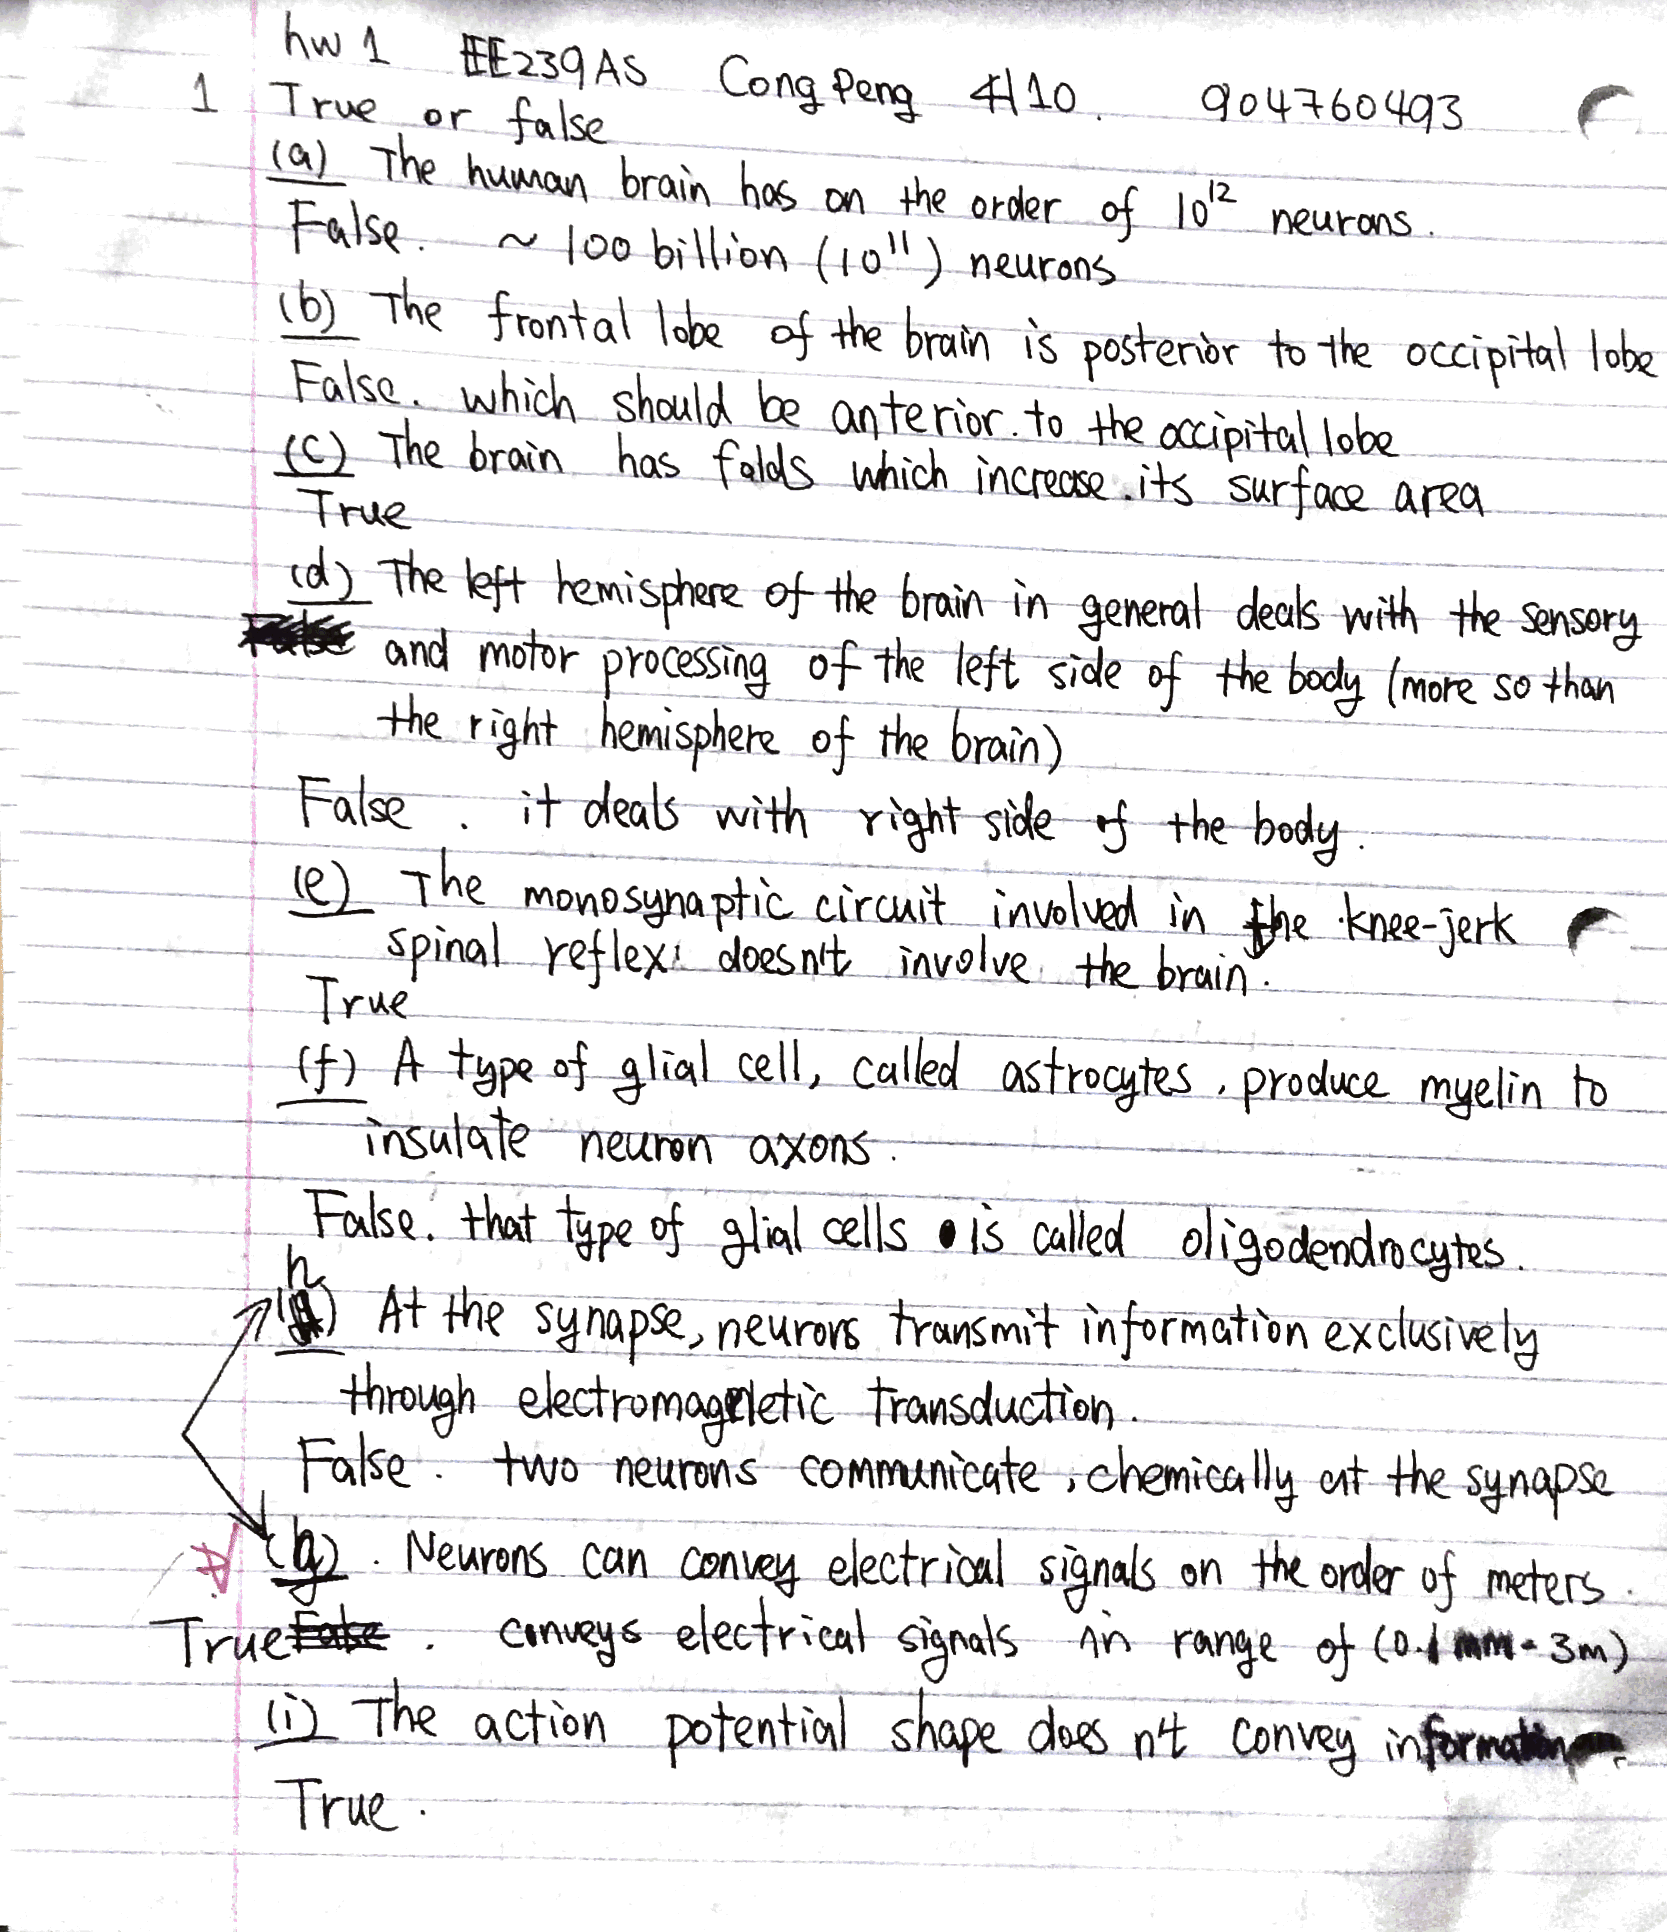 hw 1 EE239AS Cong Peng 4/10. 904760493
1 True or false
(a) The human brain has on the order of 10^12 neurons.
False. ~ 100 billion (10^11) neurons
(b) The frontal lobe of the brain is posterior to the occipital lobe
False. which should be anterior. to the occipital lobe
(c) The brain has folds which increase its surface area
True
(d) The left hemisphere of the brain in general deals with the sensory
and motor processing of the left side of the body (more so than
the right hemisphere of the brain)
False. it deals with right side of the body.
(e) The monosynaptic circuit involved in the knee-jerk
spinal reflex doesn't involve the brain.
True
(f) A type of glial cell, called astrocytes, produce myelin to
insulate neuron axons.
False. that type of glial cells is called oligodendrocytes.
(h) At the synapse, neurons transmit information exclusively
through electromagnetic transduction.
False. two neurons communicate, chemically at the synapse
(g). Neurons can convey electrical signals on the order of meters.
True False. conveys electrical signals in range of (0.1 mm - 3m)
(i) The action potential shape does n't convey information
True.